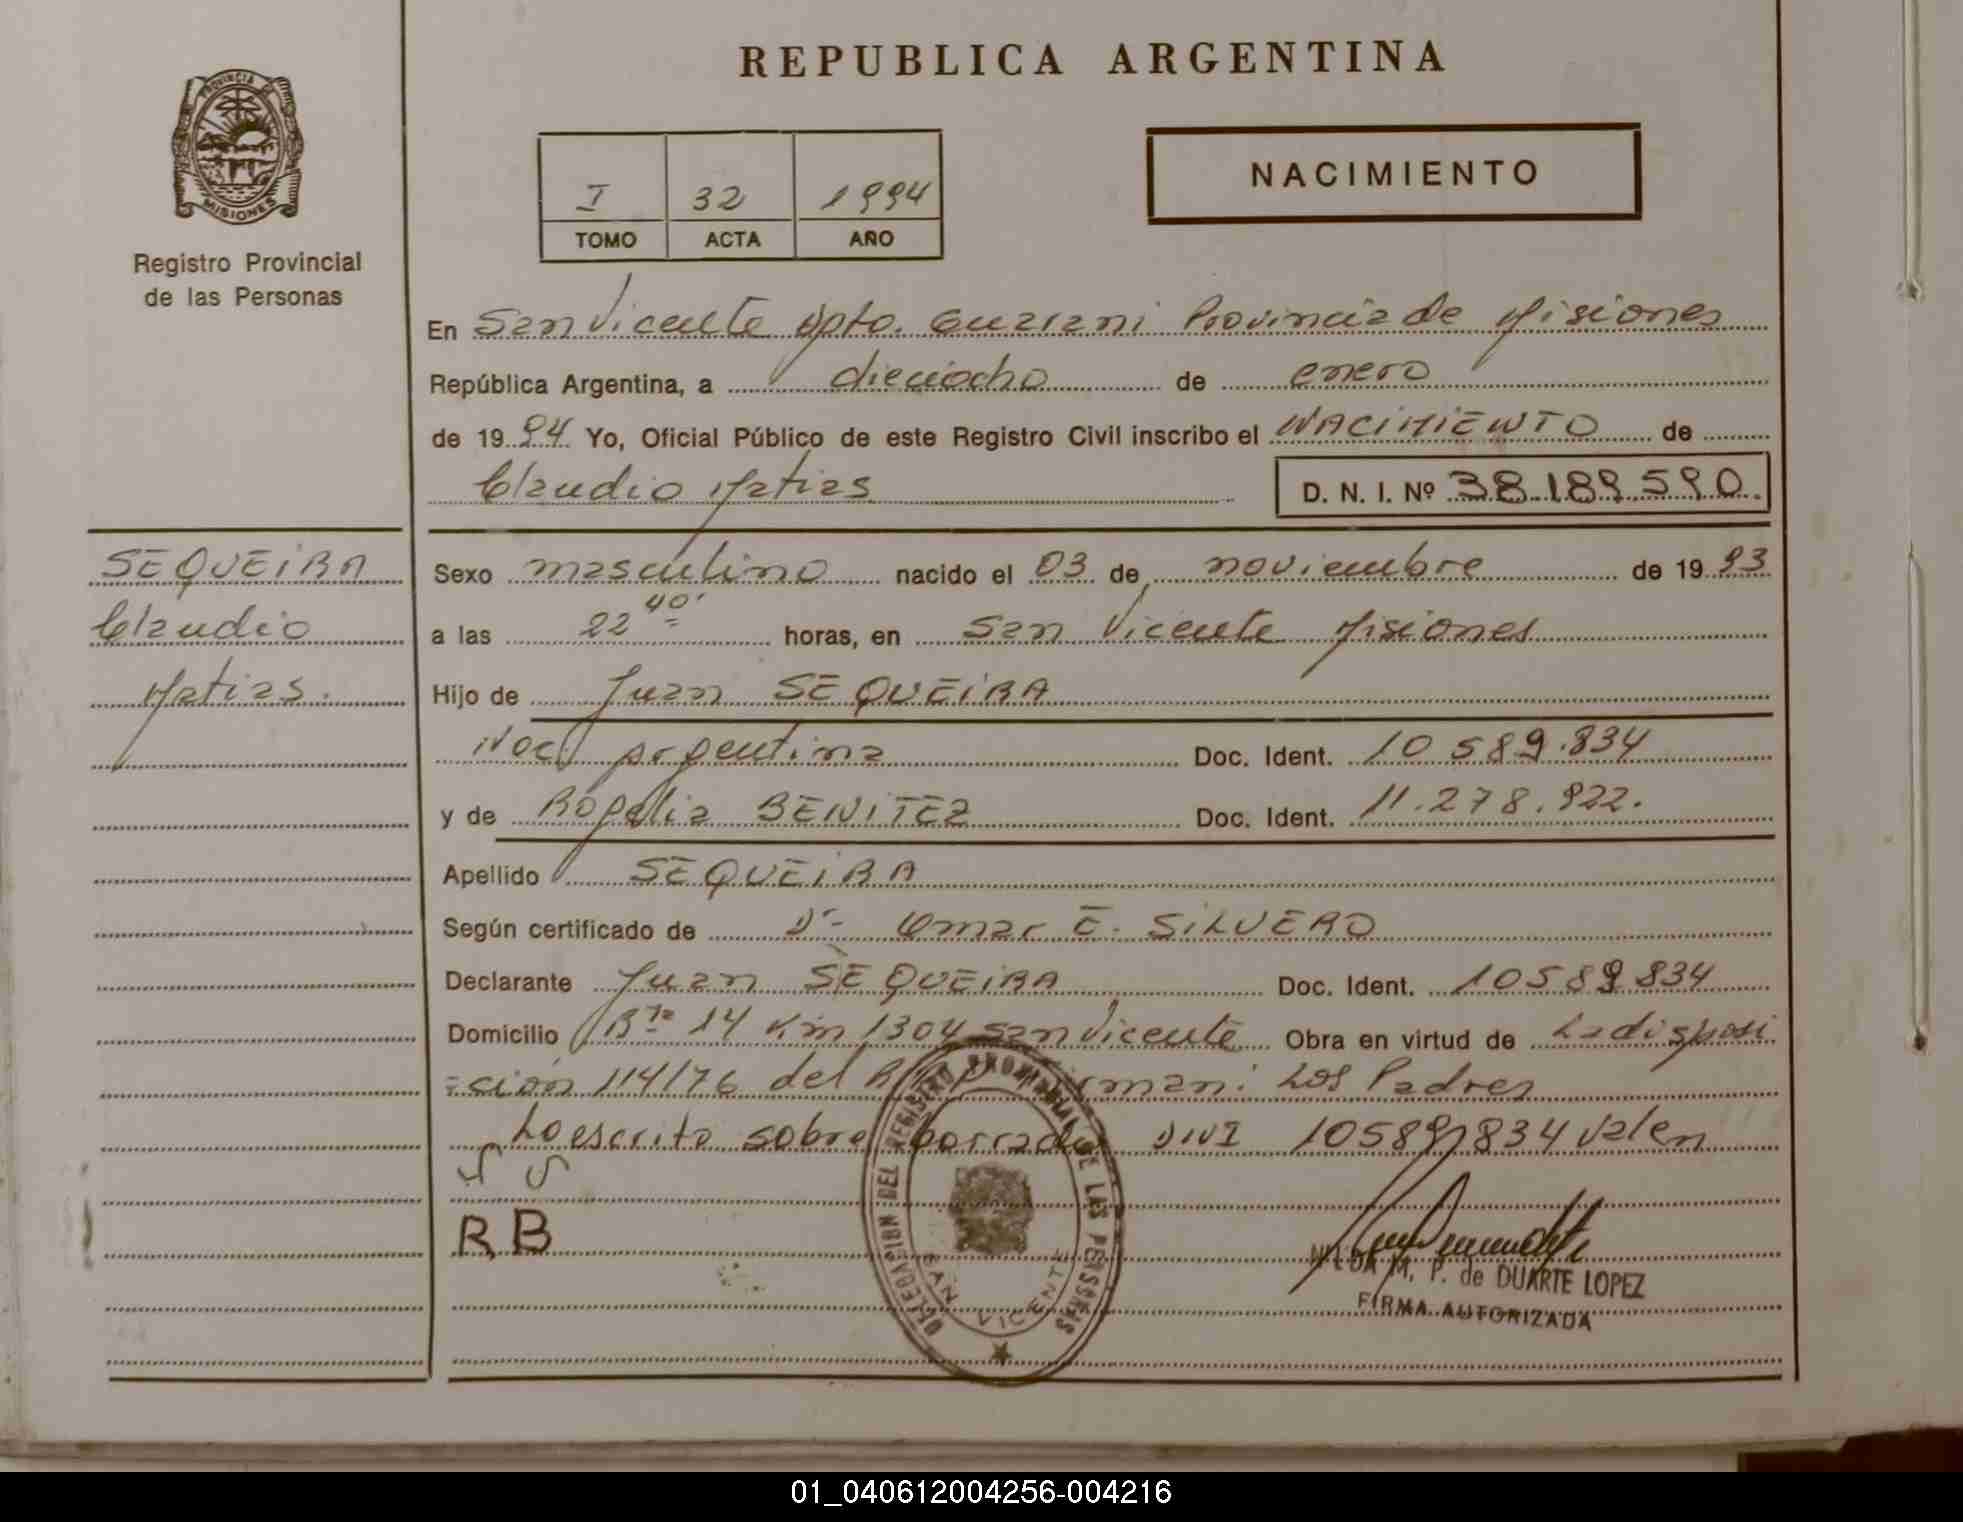 REPUBLICA ARGENTINA
PROVINCIA DE
MISIONES
Registro Provincial
de las Personas
I 32 1994
TOMO ACTA AÑO
NACIMIENTO
En San Vicente Dpto. Guarani Provincia de Misiones
República Argentina, a dieciocho de enero
de 1994 Yo, Oficial Público de este Registro Civil inscribo el NACIMIENTO de
Claudio Matias D. N. I. Nº 38.189.590.
SEQUEIRA
Claudio
Matias.
Sexo masculino nacido el 03 de noviembre de 1993
a las 22 40' horas, en San Vicente Misiones
Hijo de Juan SEQUEIRA
Nac. Argentina Doc. Ident. 10 589.834
y de Rogelia BENITEZ Doc. Ident. 11.278.922.
Apellido SEQUEIRA
Según certificado de Dr. Omar E. SILVERO
Declarante Juan SEQUEIRA Doc. Ident. 10589834
Domicilio R 14 Km 1304 San Vicente Obra en virtud de La disposi
=ción 114/76 del Los Padres
Lo escrito sobre borrado DNI 10589834 Valen
J S
R B
DELEGACION DEL REGISTRO PROVINCIAL DE LAS PERSONAS
SAN VICENTE
NILDA M. P. de DUARTE LOPEZ
FIRMA AUTORIZADA
01_040612004256-004216